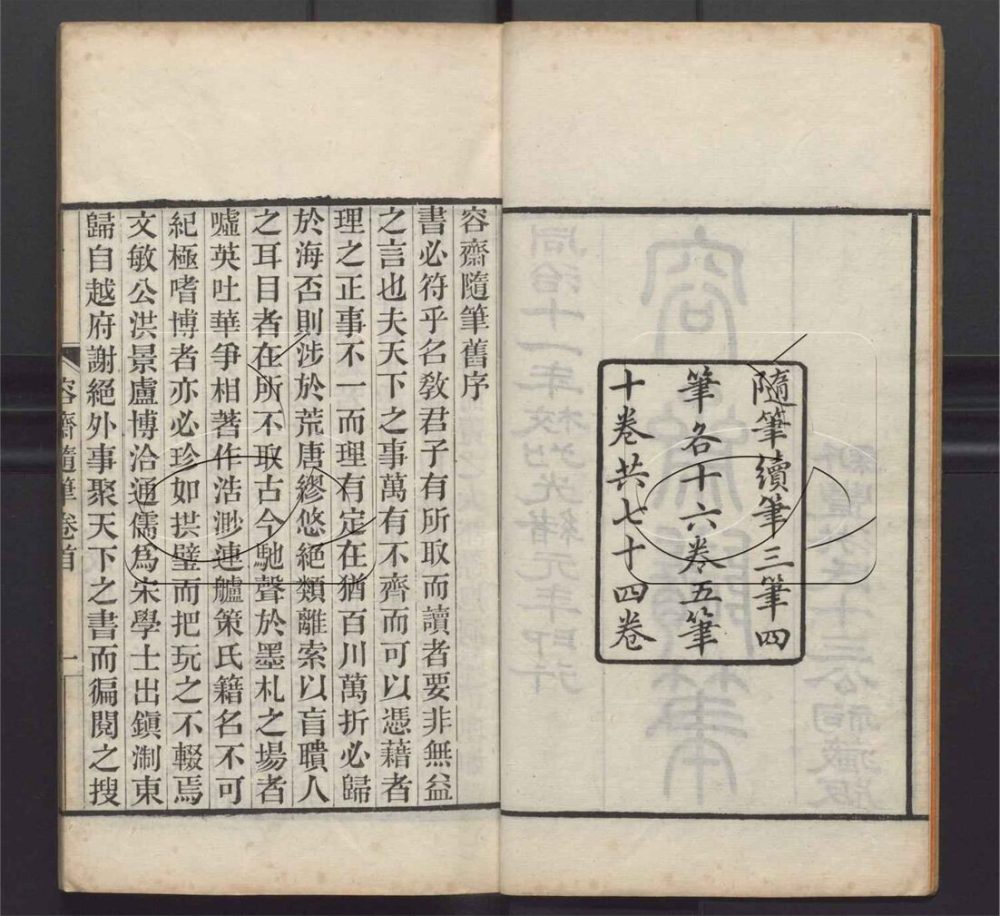 隨筆續筆三筆四
筆各十六卷五筆
十卷共七十四卷
容齋隨筆舊序
書必符乎名敎君子有所取而讀者要非無益
之言也夫天下之事萬有不齊而可以憑藉者
理之正事不一而理有定在猶百川萬折必歸
於海否則涉於荒唐繆悠絕類離索以盲聵人
之耳目者在所不取古今馳聲於墨札之場者
噓英吐華爭相著作浩渺連艫策氏籍名不可
紀極嗜博者亦必珍如拱璧而把玩之不輟焉
文敏公洪景盧博洽通儒爲宋學士出鎭淛東
歸自越府謝絕外事聚天下之書而徧閱之搜
容齋隨筆卷首
一